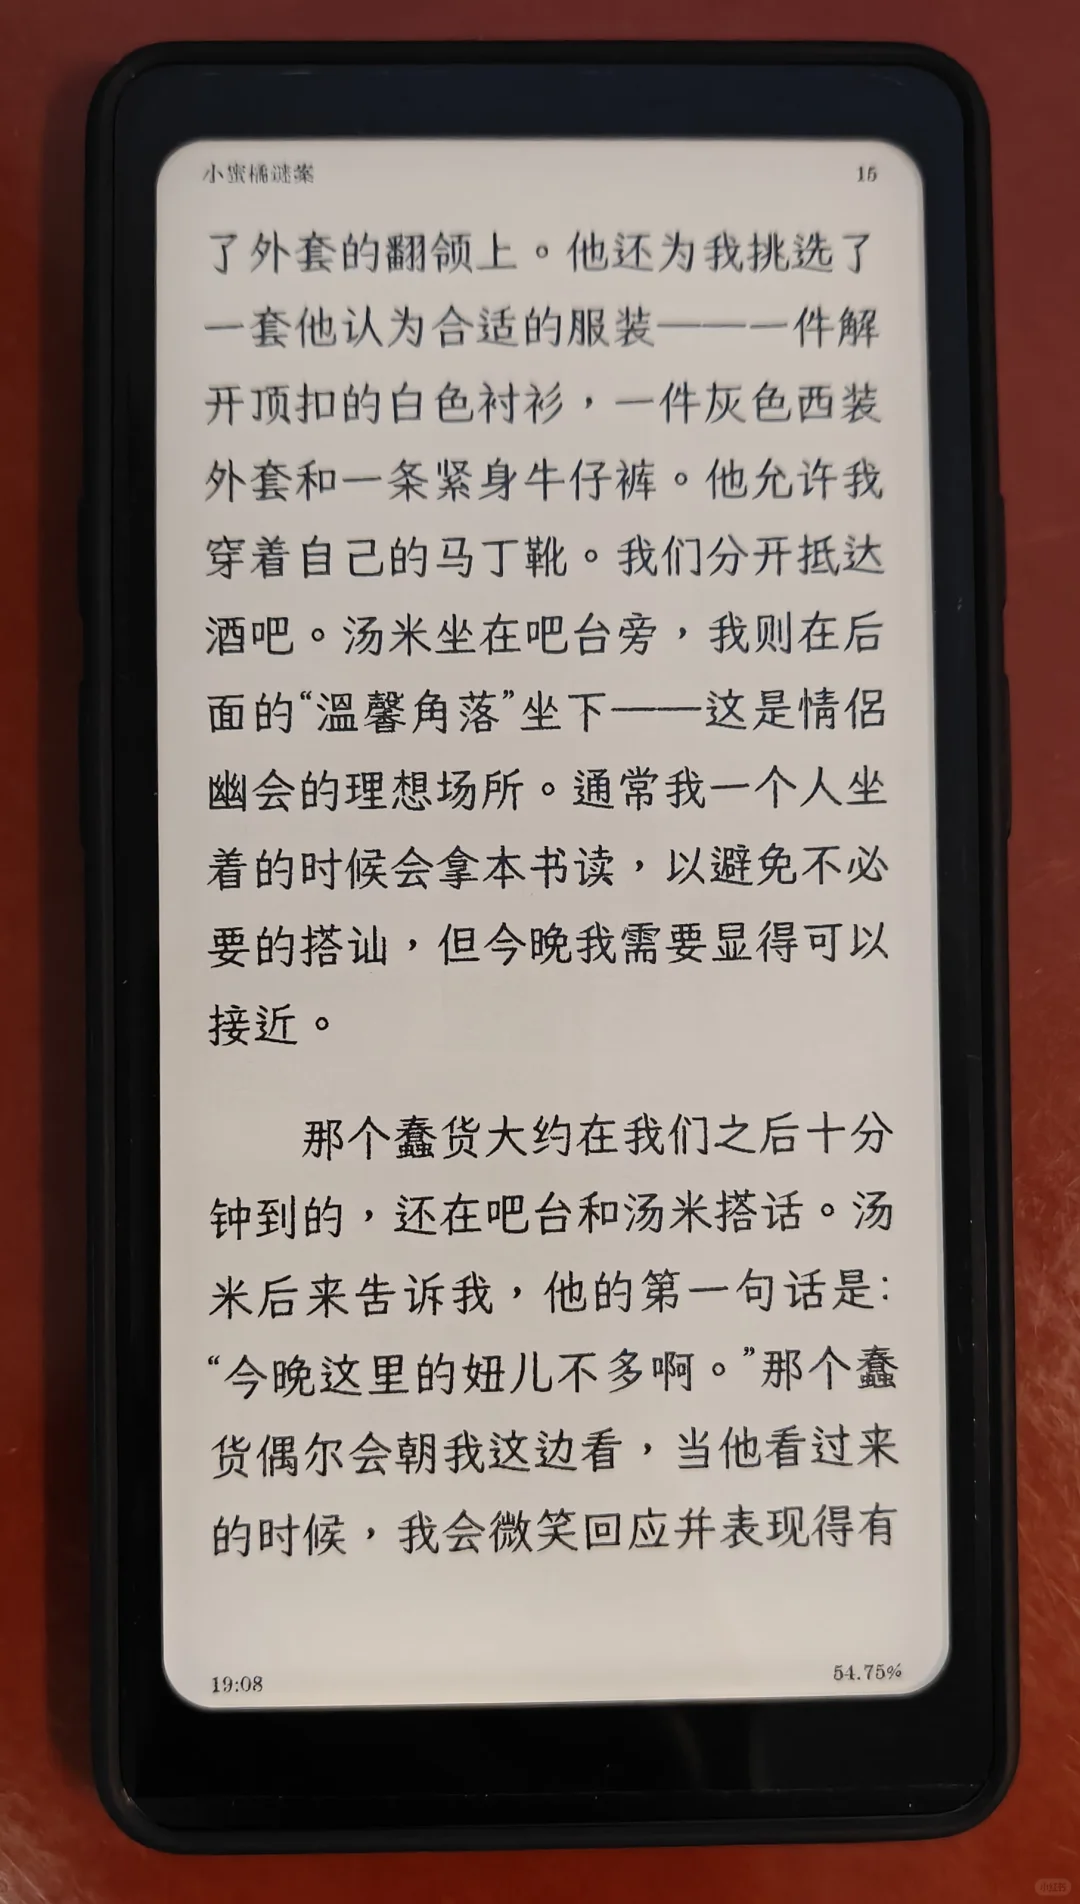 小蜜橘谜案
15
了外套的翻领上。他还为我挑选了
一套他认为合适的服装———一件解
开顶扣的白色衬衫，一件灰色西装
外套和一条紧身牛仔裤。他允许我
穿着自己的马丁靴。我们分开抵达
酒吧。汤米坐在吧台旁，我则在后
面的“温馨角落”坐下——这是情侣
幽会的理想场所。通常我一个人坐
着的时候会拿本书读，以避免不必
要的搭讪，但今晚我需要显得可以
接近。
那个蠢货大约在我们之后十分
钟到的，还在吧台和汤米搭话。汤
米后来告诉我，他的第一句话是：
“今晚这里的妞儿不多啊。”那个蠢
货偶尔会朝我这边看，当他看过来
的时候，我会微笑回应并表现得有
19:08
54.75%
小红书